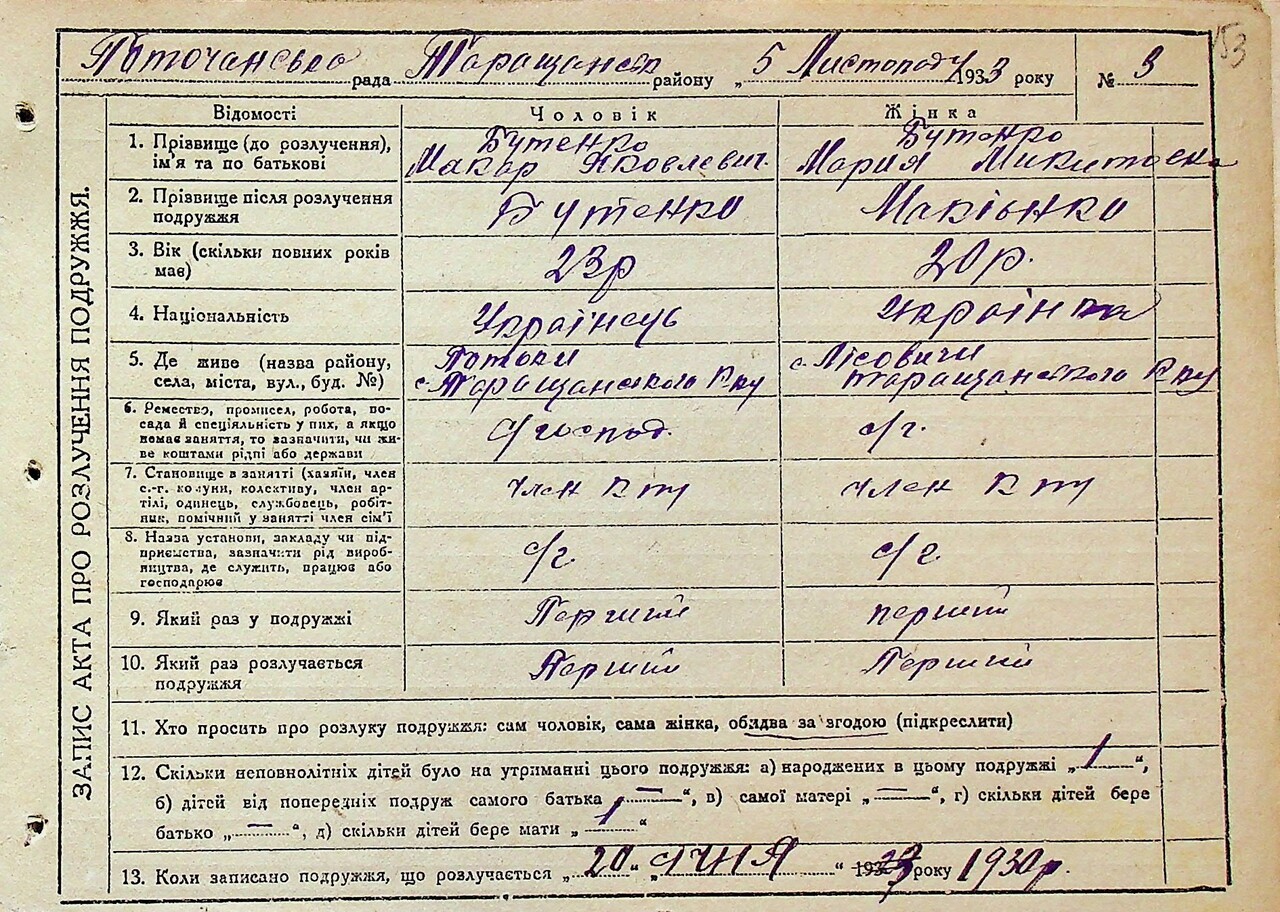 153
Поточанська рада Таращанськ району „ 5 Листопаду 1933 року № 3
ЗАПИС АКТА ПРО РОЗЛУЧЕННЯ ПОДРУЖЖЯ.
Відомості Чоловік Жінка
1. Прізвище (до розлучення), ім'я та по батькові Бутенко Макар Яковлевич Бутенко Мария
2. Прізвище після розлучення подружжя Бутенко
3. Вік (скільки повних років має) 23р 20р.
4. Національність Українець українка
5. Де живе (назва району, села, міста, вул., буд. №) с. Потоки Таращанского Р-ну с. Лісовичи таращанского Р-ну
6. Ремество, промисел, робота, посада й спеціяльність у них, а якщо немає заняття, то зазначити, чи живе коштами рідні або держави с/господ. с/г.
7. Становище в занятті (хазяїн, член с.-г. комуни, колективу, член артілі, одинець, службовець, робітник, помічний у занятті член сім'ї член член
8. Назва установи, закладу чи підприємства, зазначити рід виробництва, де служить, працює або господарює с/г. с/г.
9. Який раз у подружжі Перший перший
10. Який раз розлучається подружжя Перший Перший
11. Хто просить про розлуку подружжя: сам чоловік, сама жінка, обидва за згодою (підкреслити)
12. Скільки неповнолітніх дітей було на утриманні цього подружжя: а) народжених в цьому подружжі „ 1 “,
б) дітей від попередніх подруж самого батька „ — “, в) самої матері „ — “, г) скільки дітей бере
батько „ — “, д) скільки дітей бере мати „ 1 “
13. Коли записано подружжя, що розлучається „ 20 “ „ ічня “ року 1930р.